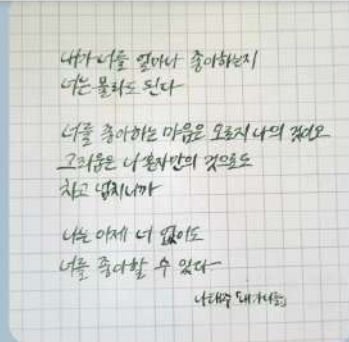 내가 너를 얼마나 좋아하는지
너는 몰라도 된다
너를 좋아하는 마음은 오로지 나의 것이오
그리움은 나 혼자만의 것으로도
차고 넘치니까
나는 이제 너 없이도
너를 좋아할 수 있다
나태주 「내가 너를」